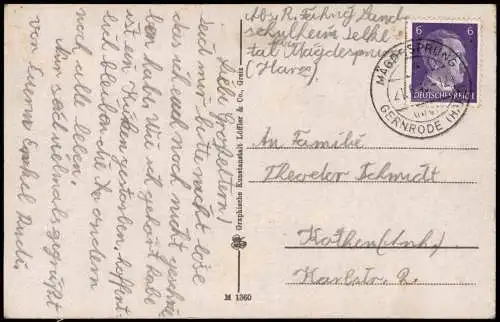 Liebe Großeltern!
Seid mir bitte nicht böse
das ich euch noch nicht geschrie-
ben habe. Wie ich gehört habe
ist ein Kücken gestorben, hoffent-
lich bleiben die anderen
noch alle leben.
Nun seid vielmals gegrüßt
von Eurem Enkel Rudi.
Graphische Kunstanstalt Löffler & Co., Greiz
M 1360
Abs. R.
schulheim Selke-
tal Mägdesprung
(Harz)
6 6
DEUTSCHES REICH
MÄGDESPRUNG
GERNRODE (H)
An Familie
Theodor Schmidt
Köthen (Anh.)
Karlstr.